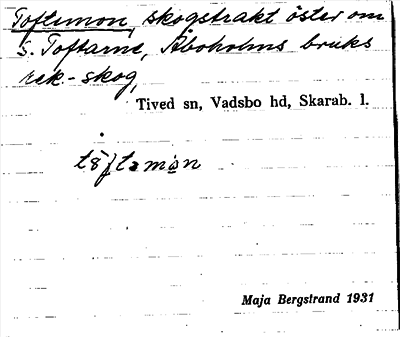 Toftemon, skogstrakt öster om
S. Toftarne, Åboholms bruks
rek.-skog,
Tived sn, Vadsbo hd, Skarab. l.
Maja Bergstrand 1931